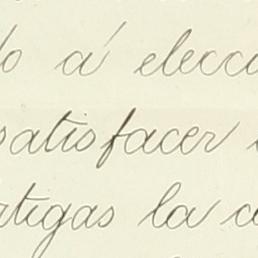 á elecc
satisfacer
rtigas la